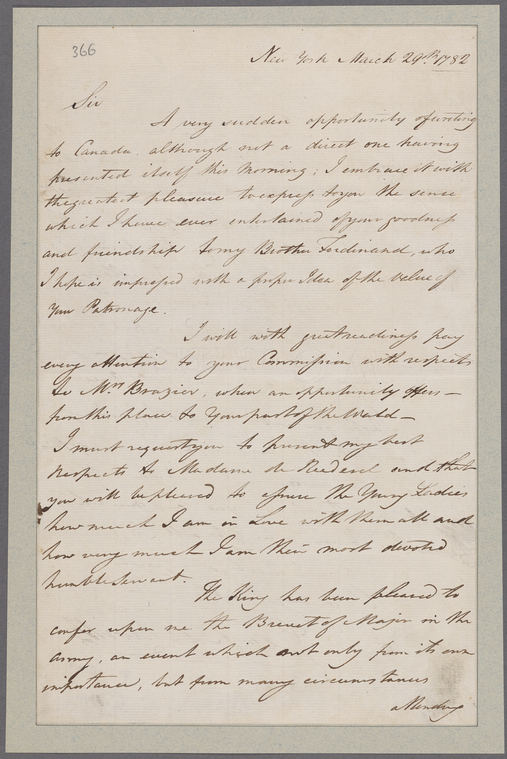 366
New York March 29th 1782
Sir
A very sudden opportunity of writing
to Canada although not a direct one having
presented itself this Morning; I embrace it with
the greatest pleasure to express to you the sense
which I have ever entertained of your goodness
and friendship to my Brother Ferdinand, who
I hope is impressed with a proper Idea of the Value of
Your Patronage.
I will with great readiness pay
every attention to your Commission with respects
to Mrs Brazier, when an opportunity offers—
from this place to Your part of the World—
I must request you to present my best
Respects to Madame de Riedesel and that
you will be pleased to assure the Young Ladies
how much I am in Love with them all and
how very much I am their most devoted
humble servant.
The King has been pleased to
confer upon me the Brevet of Major in the
Army, an event which not only from its own
importance, but from many circumstances
attending